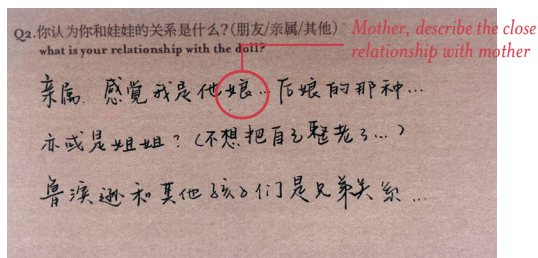 Q2.你认为你和娃娃的关系是什么？(朋友/亲属/其他)
what is your relationship with the doll?
Mother, describe the close
relationship with mother
亲属. 感觉我是他娘…后娘的那种…
亦或是姐姐？(不想把自己整老了…)
鲁滨逊和其他孩子们是兄弟关系…